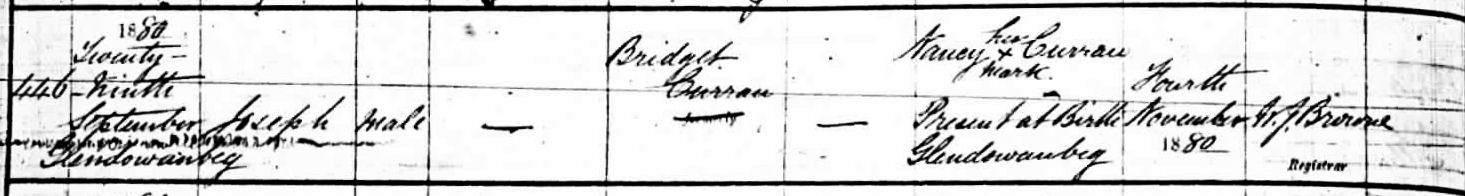 1880
Twenty-
446 Ninth
September
Glendowanbeg
Joseph
Male
—
Bridget
Curran
—
Nancy her x Curran
mark.
Present at Birth
Glendowanbeg
Fourth
November
1880
W. J. Browne
Registrar